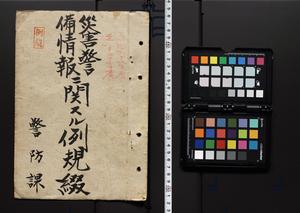 災害警
備情報ニ関スル例規綴
警防課